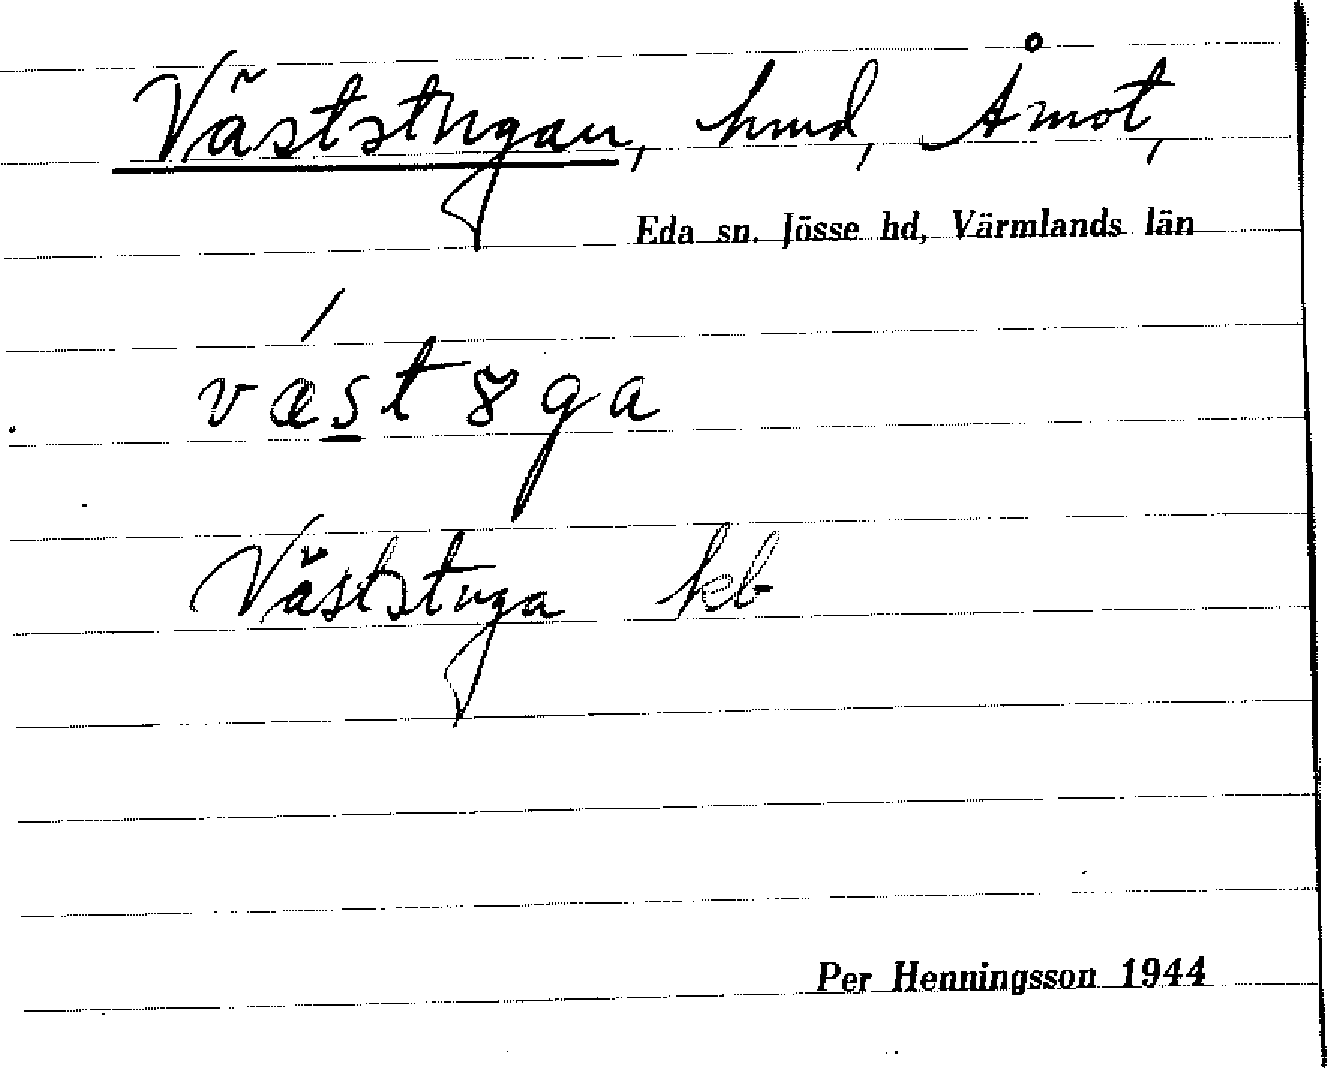 Väststugan, hmd, Åmot,
Eda sn. Jösse hd, Värmlands län
vǽstȣga
Väststuga keb
Per Henningsson 1944